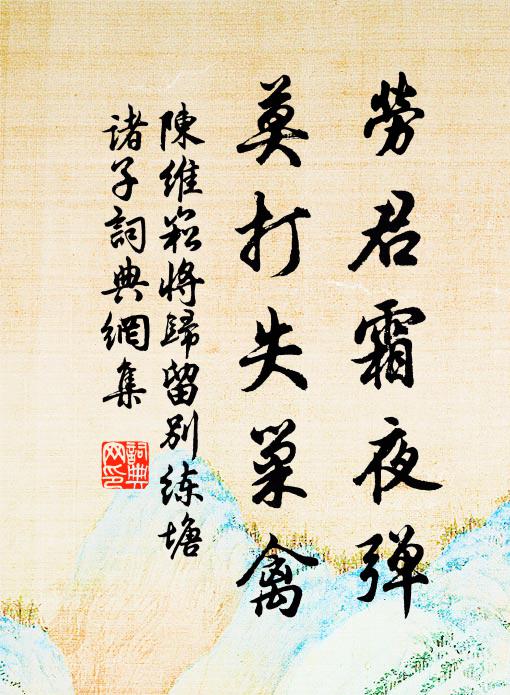 勞君霜夜弹
莫打失巢禽
陳維崧将歸留别练塘
诸子詞典網集
詞典网印